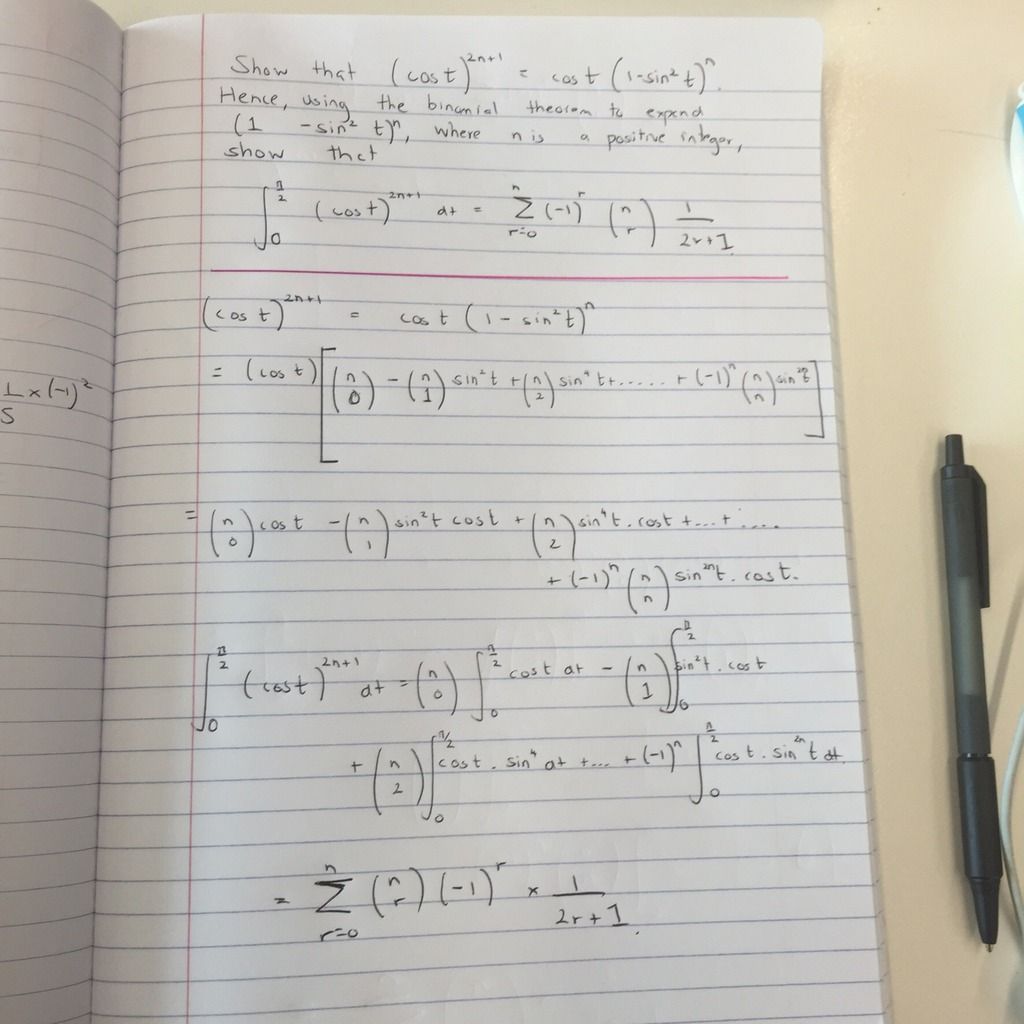 Show that (cos t)^{2n+1} = cos t (1-sin² t)^n.
Hence, using the binomial theorem to expend
(1 -sin² t)^n, where n is a positive integer,
show that
∫_0^{π/2} (cos t)^{2n+1} dt = Σ_{r=0}^{n} (-1)^r (n r) 1/(2r+1)
(cos t)^{2n+1} = cos t (1 - sin² t)^n
= (cos t) [(n 0) - (n 1) sin² t + (n 2) sin⁴ t + ...... + (-1)^n (n n) sin^{2n} t]
1/5 × (-1)²
= (n 0) cos t - (n 1) sin² t cos t + (n 2) sin⁴ t . cos t + ... + ....
+ (-1)^n (n n) sin^{2n} t . cos t.
∫_0^{π/2} (cos t)^{2n+1} dt = (n 0) ∫_0^{π/2} cos t dt - (n 1) ∫_0^{π/2} sin² t . cos t
+ (n 2) ∫_0^{π/2} cos t . sin⁴ dt + ... + (-1)^n ∫_0^{π/2} cos t . sin^{2n} t dt.
= Σ_{r=0}^{n} (n r) (-1)^r × 1/(2r+1).